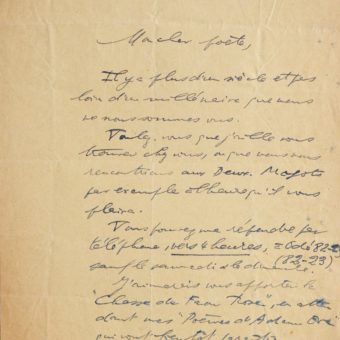 Mon cher poète,
Il y a plus d'un siècle et pas
loin d'un millénaire que nous
ne nous sommes vus.
Voulez-vous que j'aille vous
trouver chez vous, ou que nous nous
rencontrions aux Deux-Magots
par exemple à l'heure qu'il vous
plaira.
Vous pouvez me répondre par
téléphone vers 4 heures,
(82-23)
sauf le samedi et le dimanche.
J'aimerais vous apporter la
"Chasse du Faon Rose", en atten
dant mes "Poèmes d'Adam
qui vont bientôt